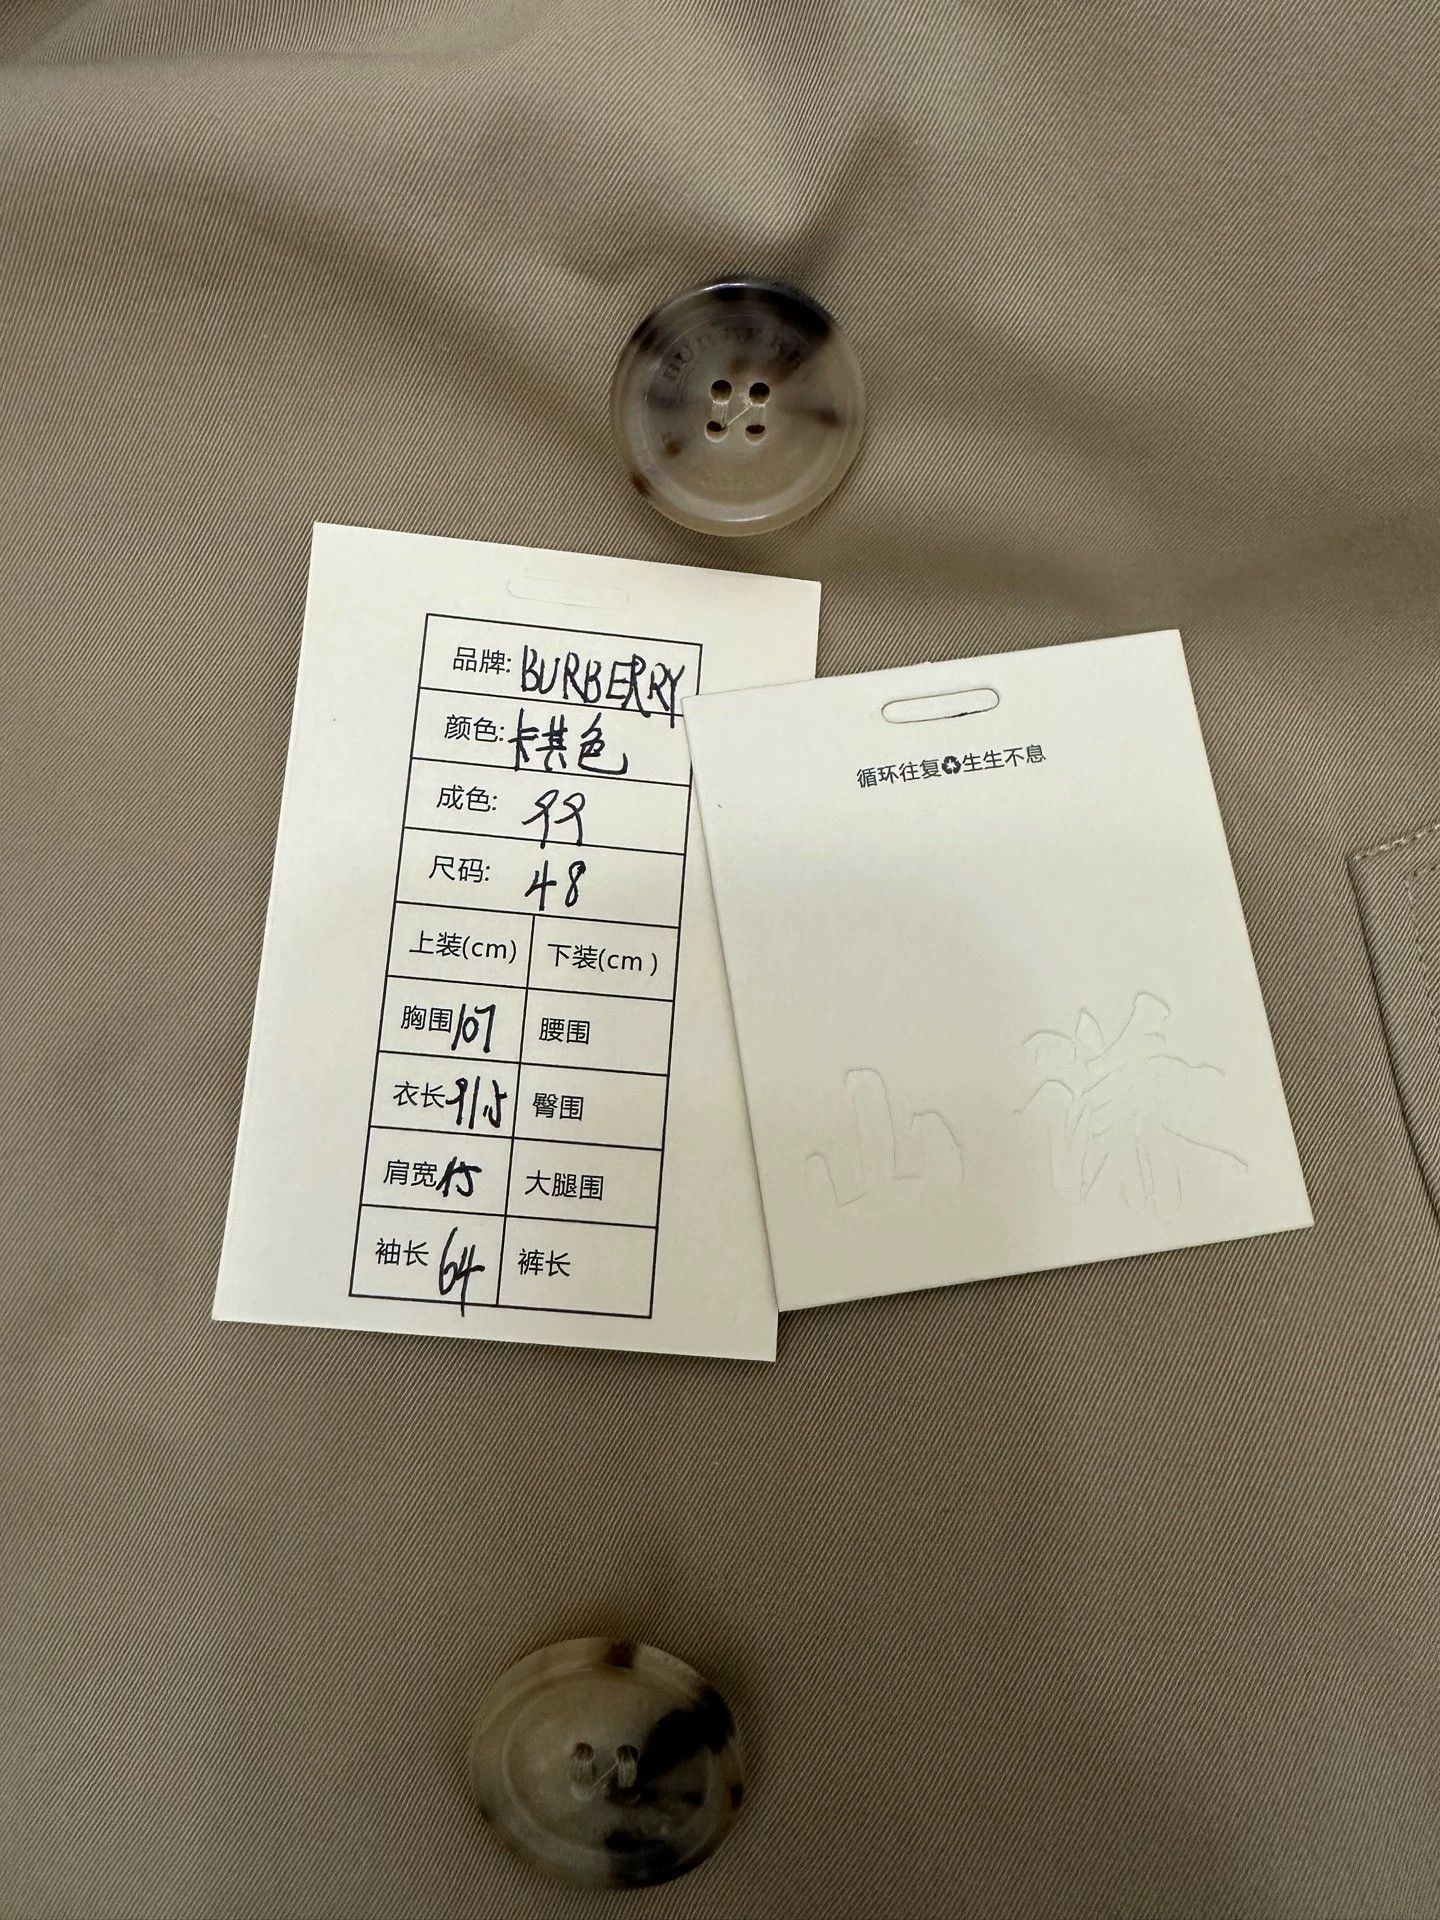 BURBERRY
品牌: BURBERRY
颜色: 卡其色
成色: 99
尺码: 48
上装(cm) 下装(cm)
胸围 107 腰围
衣长 91.5 臀围
肩宽 45 大腿围
袖长 64 裤长
循环往复♻生生不息
山